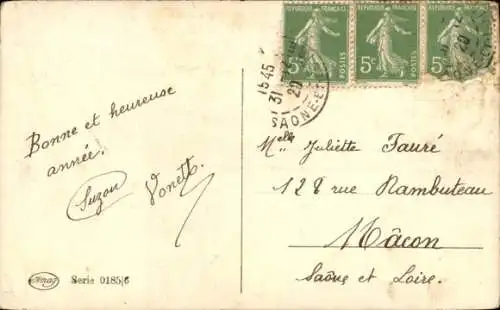 RÉPUBLIQUE FRANÇAISE
5c POSTES
RÉPUBLIQUE FRANÇAISE
5c POSTES
5c
15 45
31
20
SAONE-ET
Bonne et heureuse
année.
Suzon
Yonett.
Melle Juliette Fauré
128 rue Rambuteau
Mâcon
Saône et Loire.
Amag
Serie 0185/6